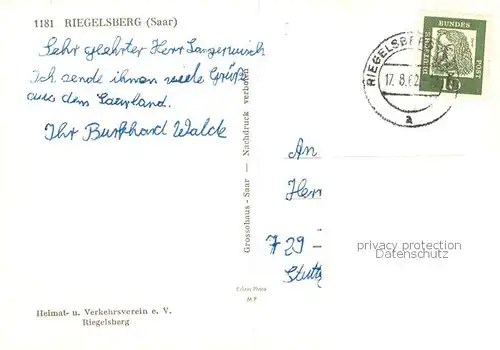 1181 RIEGELSBERG (Saar)
Sehr geehrter Herr Langerwisch
Ich sende ihnen viele Grüße
aus dem Saarland.
Ihr Burkhard Walde
Grossohaus - Saar — Nachdruck verboten
RIEGELSBE
17. 8. 62
a
DEUTSCHE
BUNDES
POST
10
An
Herr
729 –
Stuttg
privacy protection
Datenschutz
Echtes Photo
M P
Heimat- u. Verkehrsverein e. V.
Riegelsberg